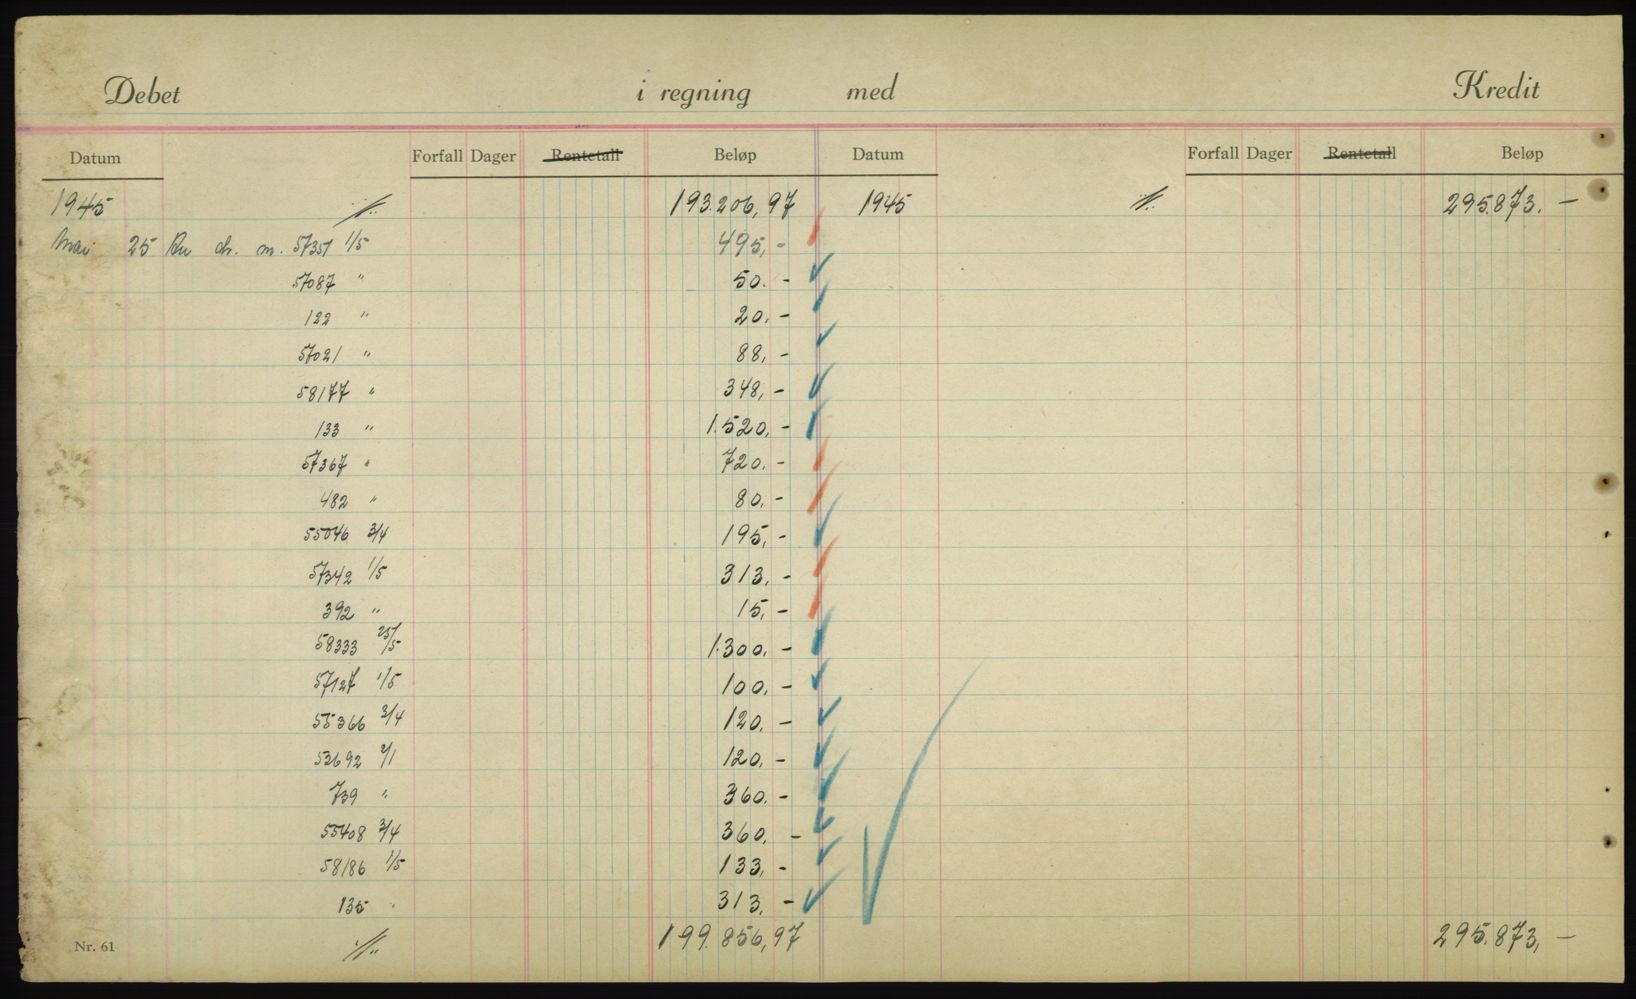 Debet i regning med Kredit
Datum Forfall Dager Rentetall Beløp Datum Forfall Dager Rentetall Beløp
1945 193.206,97 1945 295.873.-
Mai 25 57351 1/5 495,-
57087 " 50.-
122 " 20.-
57021 " 88,-
58177 " 348,-
133 " 1.520,-
57367 " 720.-
482 " 80.-
55046 3/4 195.-
57342 1/5 313.-
392 " 15,-
58333 25/5 1.300.-
57127 1/5 100.-
55366 3/4 120.-
53692 2/1 120.-
739 " 360.-
55408 3/4 360.-
58186 1/5 133.-
135 " 313.-
Nr. 61 199.856,97 295.873,-